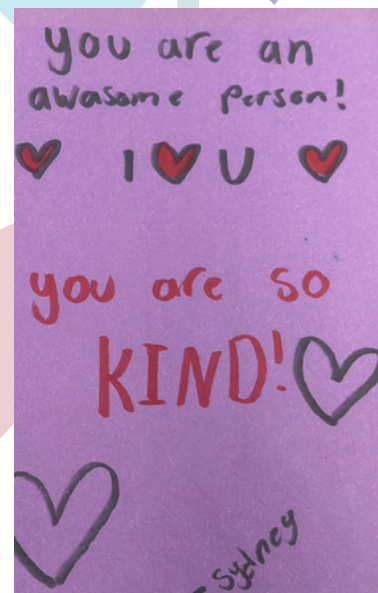 you are an
awasome person!
I ♥ U
you are so
KIND!
- Sydney